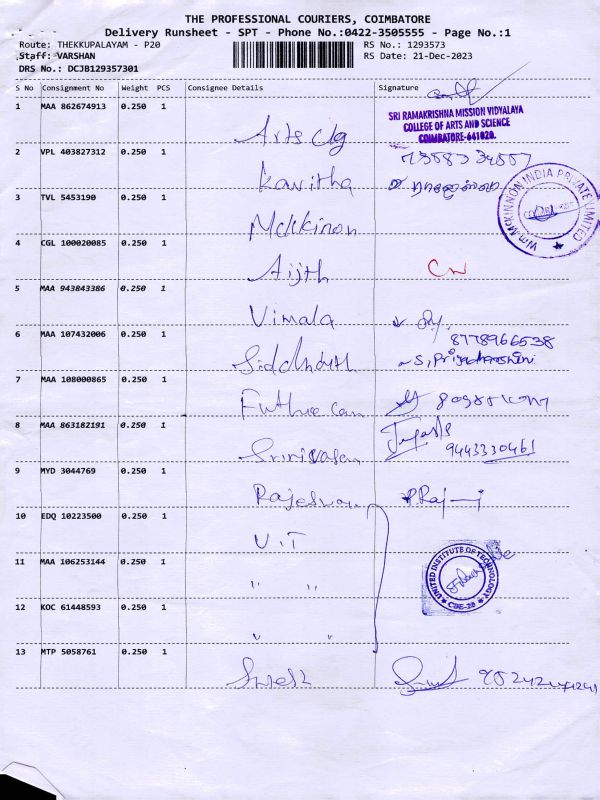 THE PROFESSIONAL COURIERS, COIMBATORE
Delivery Runsheet - SPT - Phone No.:0422-3505555 - Page No.:1
Route: THEKKUPALAYAM - P20
RS No.: 1293573
Staff: VARSHAN
RS Date: 21-Dec-2023
DRS No.: DCJB129357301
S No Consignment No Weight PCS Consignee Details Signature
1 MAA 862674913 0.250 1
SRI RAMAKRISHNA MISSION VIDYALAYA
COLLEGE OF ARTS AND SCIENCE
COIMBATORE-641020.
Arts Clg
2 VPL 403827312 0.250 1
Kavitha
3 TVL 5453190 0.250 1
W/m. MCKINNON INDIA PRIVATE LIMITED
Mckinon
4 CGL 100020085 0.250 1
Aijth
5 MAA 943843386 0.250 1
Vimala
6 MAA 107432006 0.250 1
8778966538
Siddharth
7 MAA 108000865 0.250 1
8 MAA 863182191 0.250 1
9443330461
Srinivasan
9 MYD 3044769 0.250 1
Rajeswari
10 EDQ 10223500 0.250 1
U.I.T
11 MAA 106253144 0.250 1
" "
UNITED INSTITUTE OF TECHNOLOGY
CBE-20
12 KOC 61448593 0.250 1
" "
13 MTP 5058761 0.250 1
Suresh